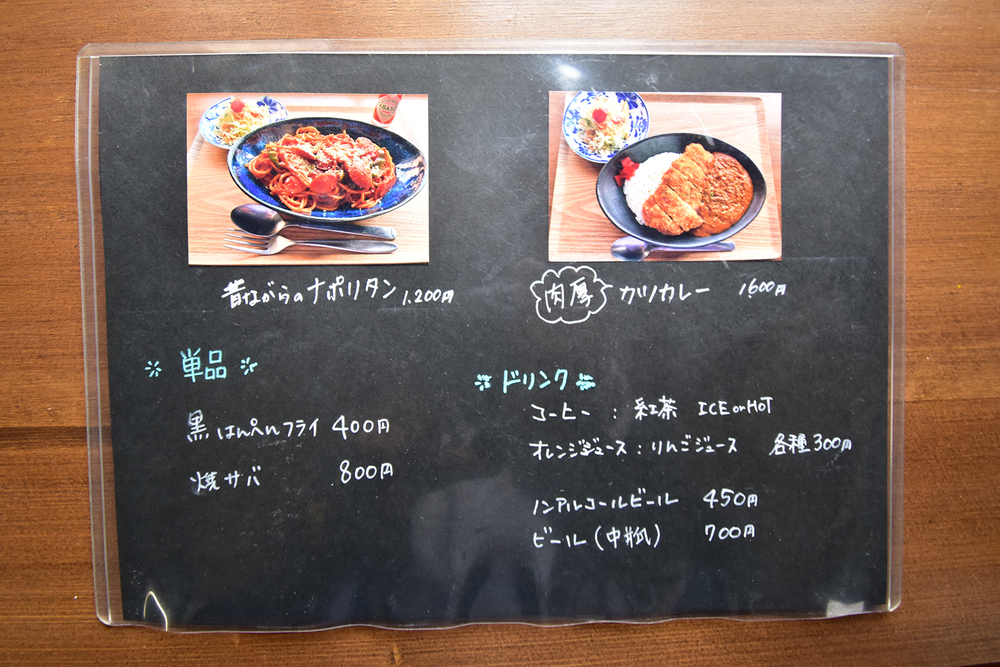 昔ながらのナポリタン 1,200円
肉厚 カツカレー 1600円
単品
黒はんぺんフライ 400円
焼サバ 800円
ドリンク
コーヒー : 紅茶 ICE or HOT
オレンジジュース : りんごジュース 各種300円
ノンアルコールビール 450円
ビール (中瓶) 700円